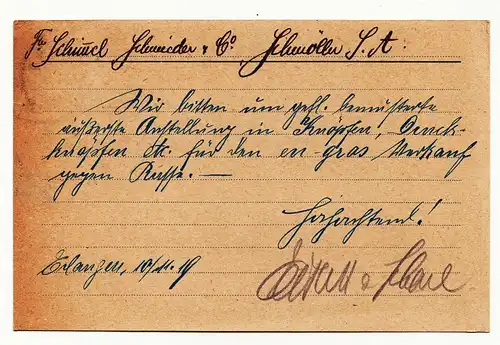 Fa Schimmel Schmieder & Co Schmölln S.A.
Wir bitten um gefl. bemusterte
äußerste Anstellung in Knöpfen, Druck-
knöpfen etc. für den en-gros Verkauf
gegen Kasse. —
Hochachtend!
Erlangen, 10/11.19